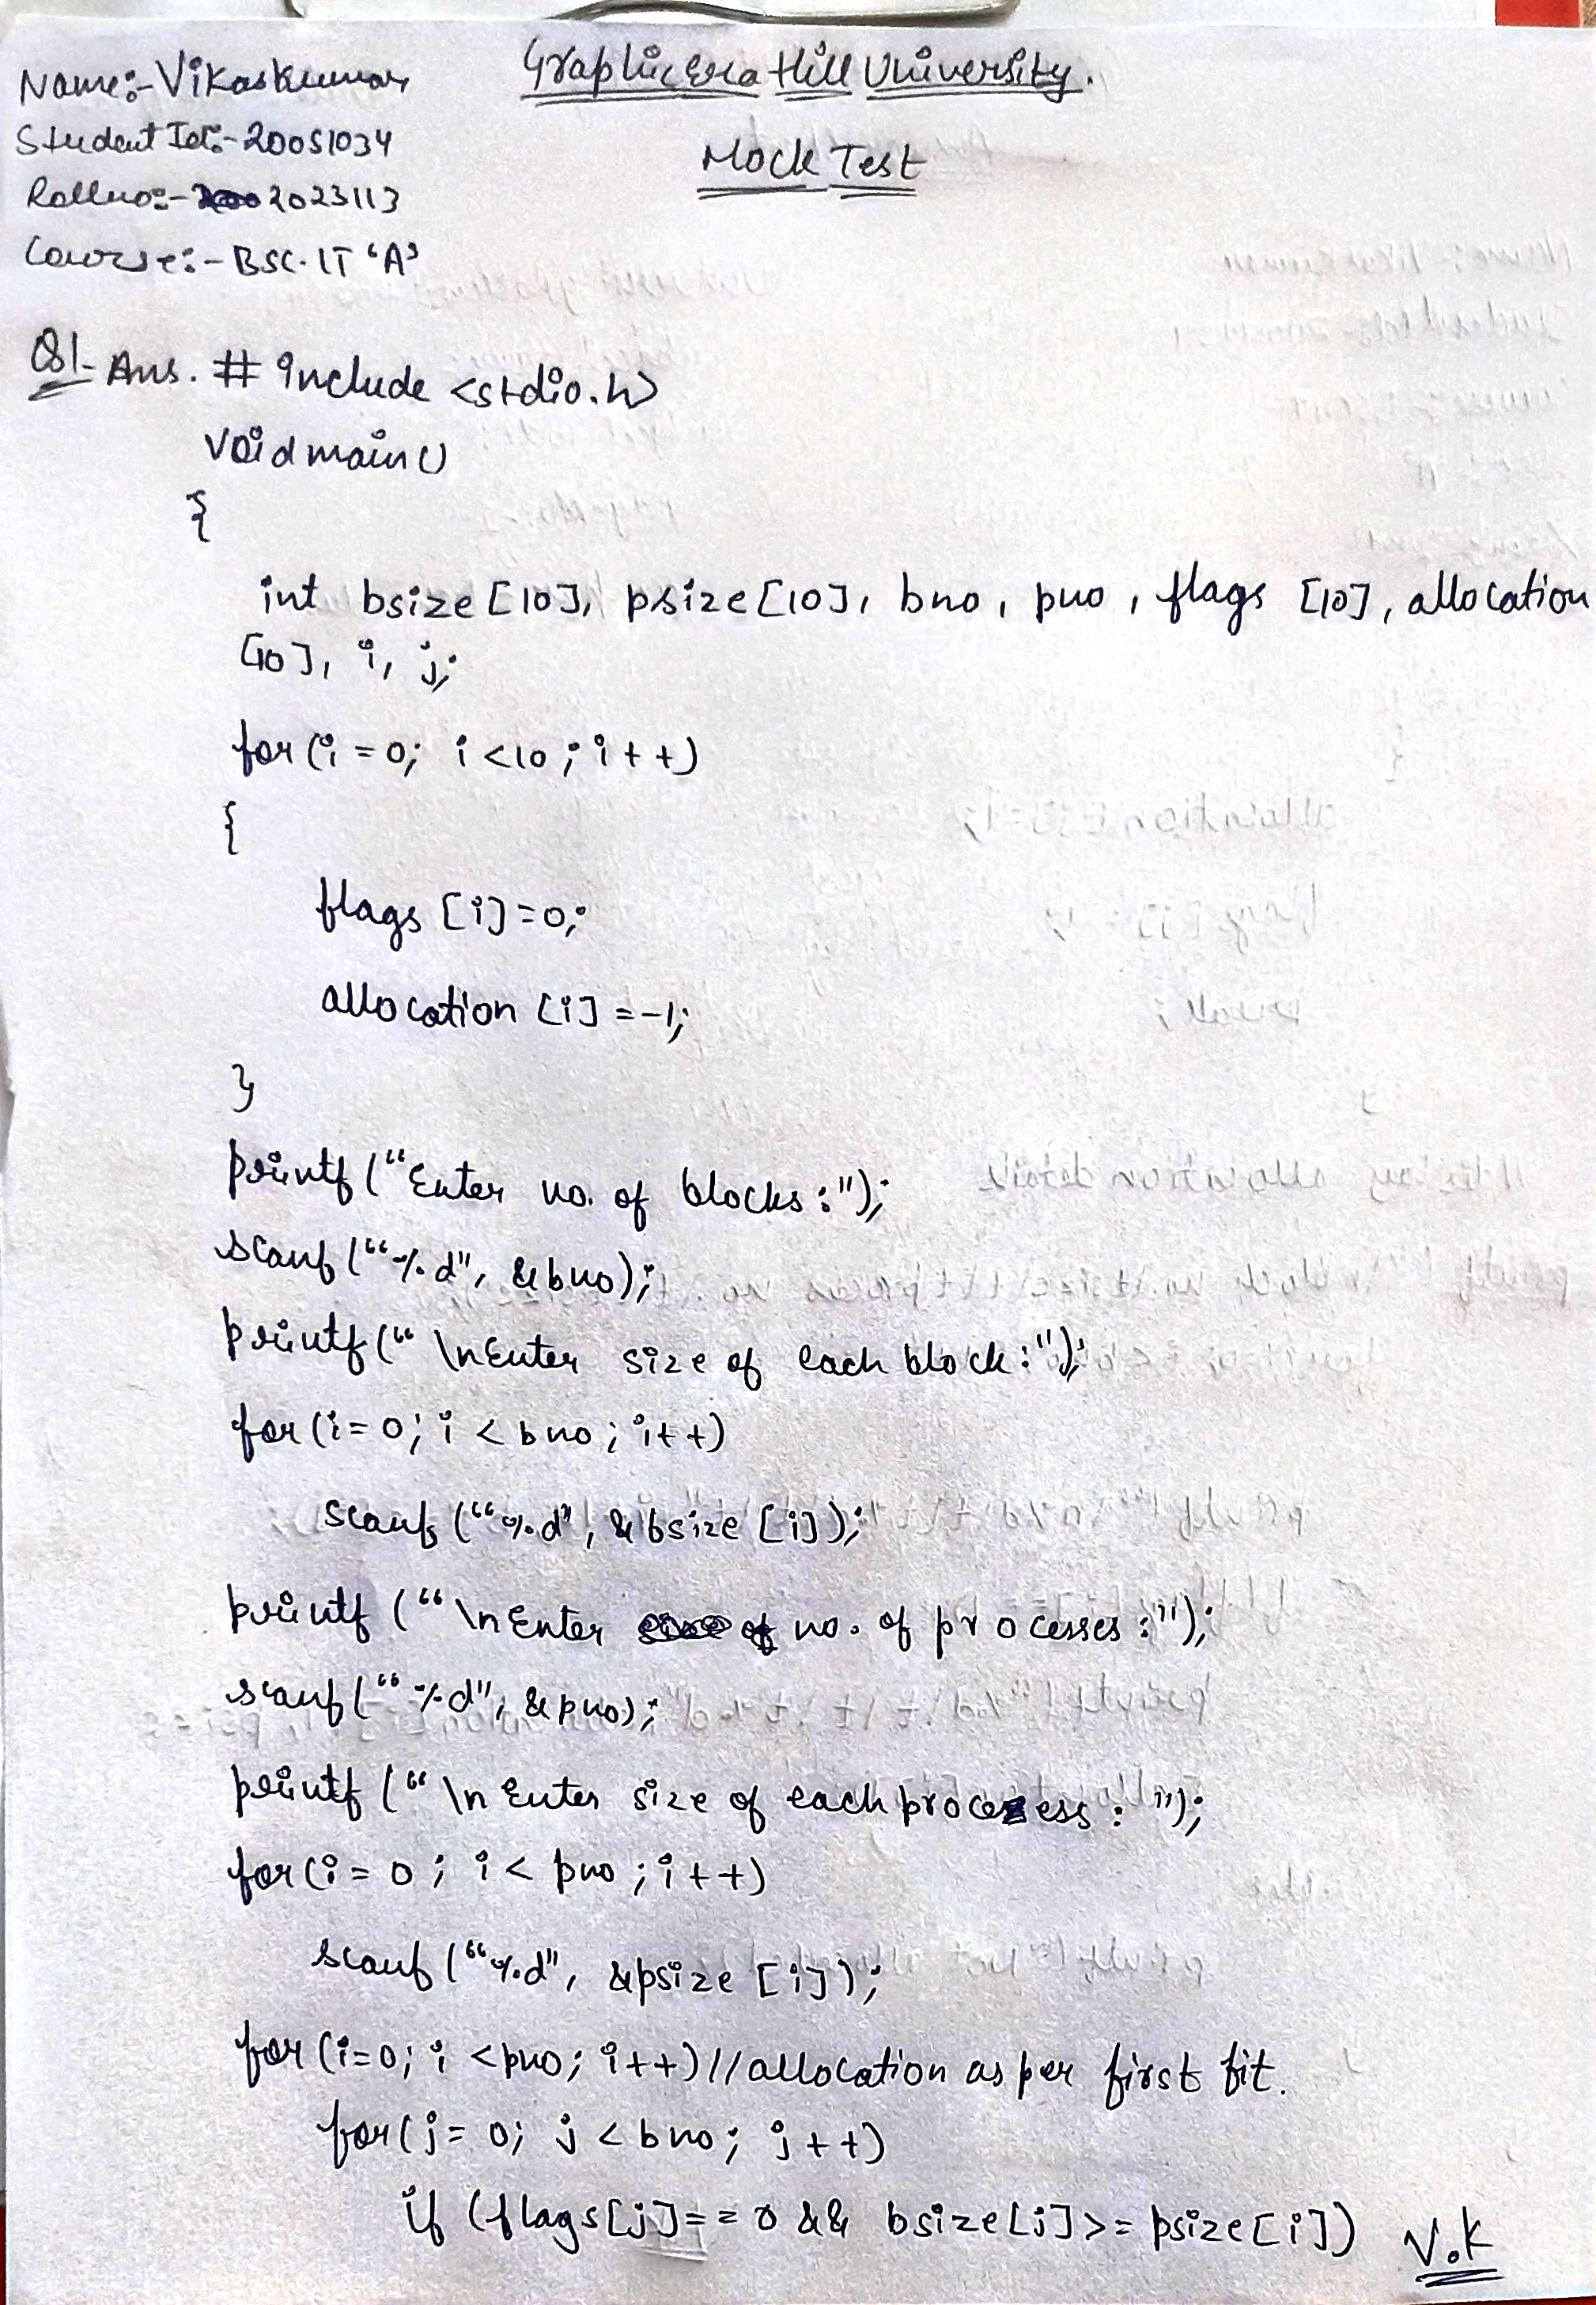 Graphic Era Hill University.
Name:- Vikas Kumar
Student Id:- 20051034
Mock Test
Rollno:- 2023113
Course:- BSC.IT 'A'
Q1- Ans. # include <stdio.h>
void main()
{
int bsize [10], psize [10], bno, pno, flags [10], allocation
[10], i, j;
for (i = 0; i <10 ; i++)
{
flags [i] = 0;
allocation [i] = -1;
}
printf ("Enter no. of blocks :");
scanf ("%d", &bno);
printf (" \nEnter size of each block :");
for (i = 0; i < bno; i++)
scanf ("%d", &bsize [i]);
printf (" \nEnter no. of processes :");
scanf (" %d", &pno);
printf (" \n Enter size of each process : ");
for (i = 0 ; i < pno ; i++)
scanf ("%d", &psize [i]);
for (i=0; i <pno; i++) //allocation as per first fit.
for (j= 0; j < bno; j++)
if (flags[j]== 0 && bsize[j]>= psize[i])
V.K